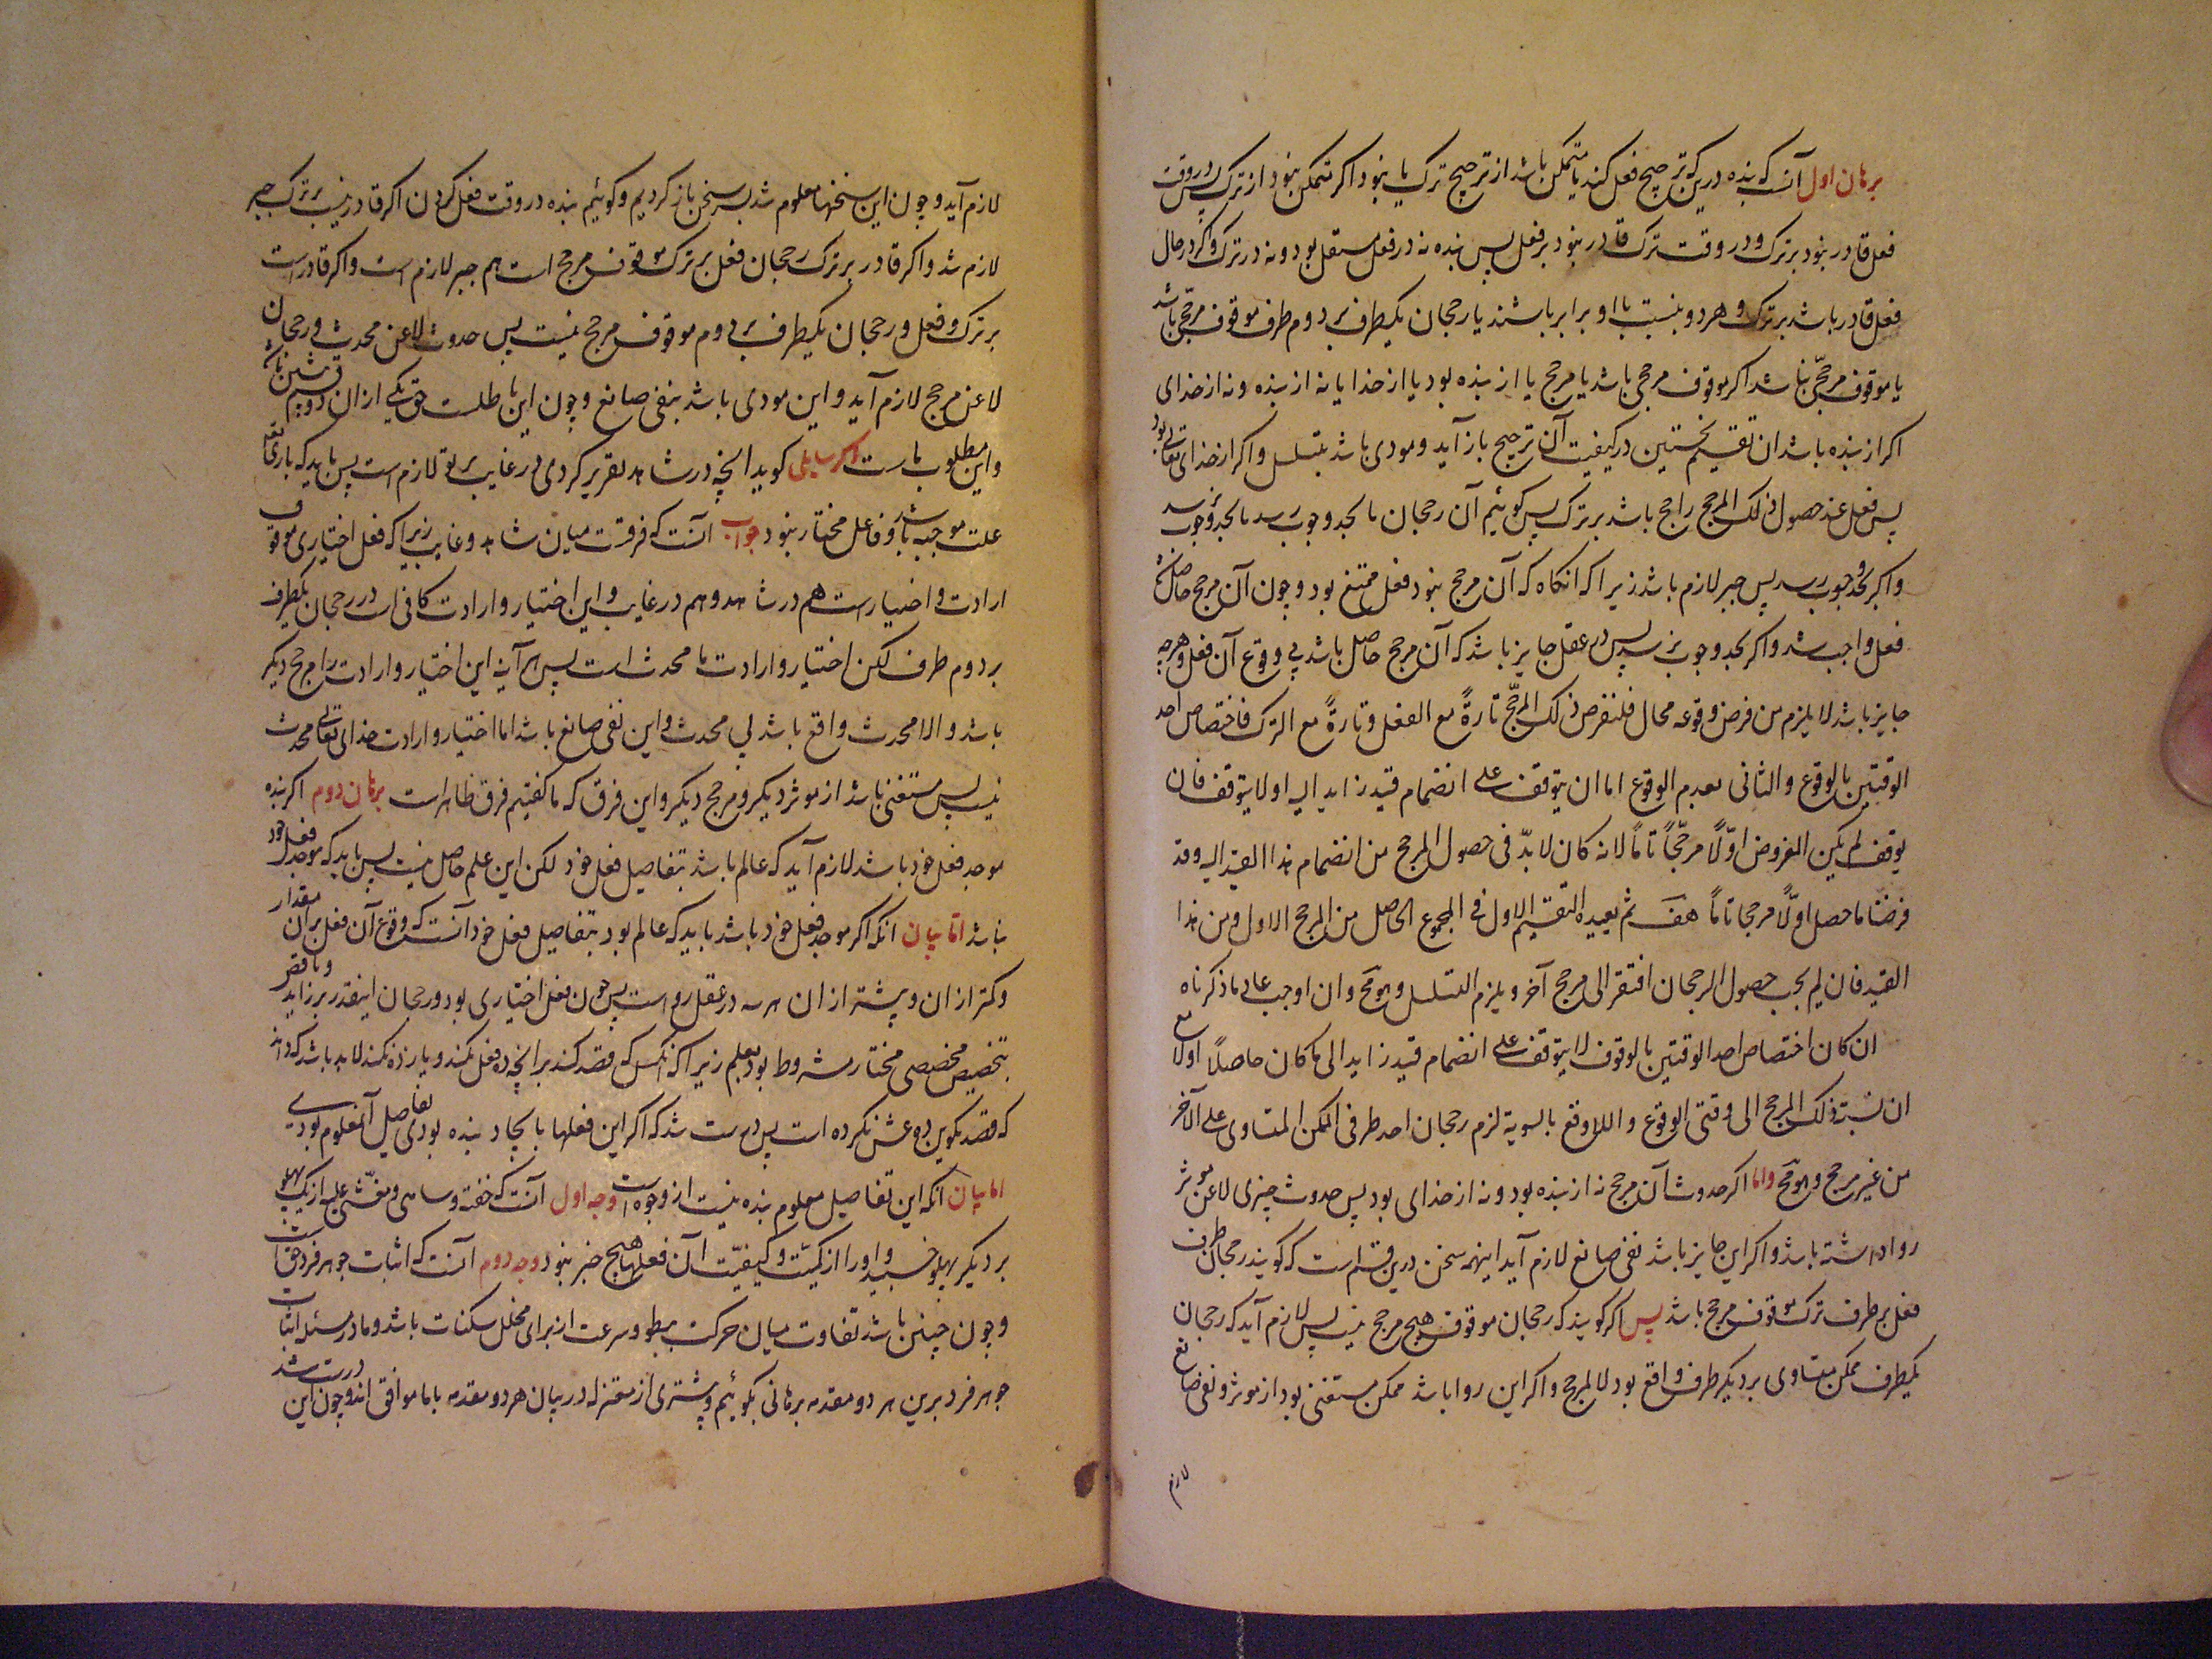 برهان اول آنست که بنده درین که ترجیح فعل کند یا متمکن باشد از ترجیح ترک یا نبود اکر متمکن نبود از ترک پس در وقت
فعل قادر نبود بر ترک و در وقت ترک قادر نبود بر فعل پس بنده نه در فعل مستقل بود و نه در ترک و اکر در حال
فعل قادر باشد بر ترک و هر دو بنسبت با او برابر باشند یا رجحان یکطرف بر دوم طرف موقوف مرجحی باشد
یا موقوف مرجّحی نباشد اکر موقوف مرجحی باشد یا مرجح یا از بنده بود یا از خدا یا نه از بنده و نه از خدای
اکر از بنده باشد ان تقسیم نخستین در کیفیت آن ترجیح باز آید و مودی باشد بتسلسل و اکر از خدای تعالی بود
پس فعل عند حصول ذلک المرجح راجح باشد بر ترک پس کوئیم آن رجحان یا بحد وجوب رسد یا بحد وجوب نرسد
و اکر بحد وجوب رسد پس جبر لازم باشد زیرا که انکاه که آن مرجح نبود فعل ممتنع بود و چون آن مرجح حاصل شد
فعل واجب شد و اکر بحد وجوب نرسد پس در عقل جایز باشد که آن مرجح حاصل باشد بی وقوع آن فعل و هرچه
جایز باشد لا یلزم من فرض وقوعه محال فلنفرض ذلک المرجّح تارةً مع الفعل و تارةً مع الترک فاختصاص احد
الوقتین بالوقوع و الثانی بعدم الوقوع اما ان یتوقف علی انضمام قید زاید الیه او لا یتوقف فان
یوقف لم یکن المفروض اوّلاً مرجّحاً تاماً لانه کان لا بدّ فی حصول المرجح من انضمام هذا القید الیه و قد
فرضنا ما حصل اوّلاً مرجحا تاماً هف ثم یعیده التقسیم الاول فی المجموع الحاصل من المرجح الاول و من هذا
القید فان لم یجب حصول الرجحان افتقر الی مرجح آخر و یلزم التسلسل و هو مح و ان اوجب عاد ما ذکرناه
ان کان اختصاص احد الوقتین بالوقوف لا یتوقف علی انضمام قید زاید الی ما کان حاصلاً اولا مع
ان نسبة ذلک المرجح الی وقتی الوقوع و اللاوقوع بالسویة لزم رجحان احد طرفی الممکن المتساوی علی الآخر
من غیر مرجح و هو مح و اما اکر حدوث آن مرجح نه از بنده بود و نه از خدای بود پس حدوث چیزی لا عن موثر
روا داشته باشد و اکر این جایز باشد نفی صانع لازم آید اینهمه سخن درین قسم است که کویند رجحان طرف
فعل بر طرف ترک موقوف مرجح باشد پس اکر کویند که رجحان موقوف هیچ مرجح نیست پس لازم آید که رجحان
یکطرف ممکن متساوی بر دیکر طرف واقع بود لا لمرجح و اکر این روا باشد ممکن مستغنی بود از موثر و نفی صانع
لازم
لازم آید و چون این سخنها معلوم شد بسر سخن باز کردیم و کوئیم بنده در وقت فعل کردن اکر قادر نیست بر ترک جبر
لازم شد و اکر قادر بر ترک رجحان فعل بر ترک موقوف مرجح است هم جبر لازم است و اکر قادر است
بر ترک و فعل و رجحان یکطرف بر دوم موقوف مرجح نیست پس حدوث لا عن محدث و رجحان
لا عن مرجح لازم آید و این مودی باشد بنفی صانع و چون این باطلست حق یکی از ان دو قسم پیشین باشد
و این مطلوب ماست اکر سایلی کوید انچه در شاهد تقریر کردی در غایب بر تو لازم است پس باید که باری تعالی
علت موجبه باشد و فاعل مختار نبود جواب آنست که فرقست میان شاهد و غایب زیرا که فعل اختیاری موقوف
ارادت و اختیار است هم در شاهد و هم در غایب و این اختیار و ارادت کافی است در رجحان یکطرف
بر دوم طرف لکن اختیار و ارادت ما محدث است پس هر آینه این اختیار و ارادت را مرجح دیکر
باشد و الا محدث واقع باشد بی محدث و این نفی صانع باشد اما اختیار و ارادت خدای تعالی محدث
نیست پس مستغنی باشد از موثر دیکر و مرجح دیکر و این فرق که ما کفتیم فرق ظاهر است برهان دوم اکر بنده
موجد فعل خود باشد لازم آید که عالم باشد بتفاصیل فعل خود لکن این علم حاصل نیست پس باید که موجد فعل خود
نباشد اما بیان آنکه اکر موجد فعل خود باشد باید که عالم بود بتفاصیل فعل خود آنست که وقوع آن فعل بر آن مقدار
و کمتر از ان و بیشتر از ان هر سه در عقل رواست پس چون فعل اختیاری بود و رجحان اینقدر بر زاید و ناقص
بتخصیص مخصصی مختار مشروط بود بعلم زیرا که آنکس که قصد کند بر آنچه ده فعل بکند و یازده نکند لا بد باشد که داند
که قصد تکوین ده عشر نکرده است پس درست شد که اکر این فعلها بایجاد بنده بودی تفاصیل آن معلوم بودی
اما بیان آنکه این تفاصیل معلوم بنده نیست از وجوه است وجه اول آنست که خفته و ساهی و مغشّی علیه از یک پهلو
بر دیکر پهلو خسبد و او را از کمیّت و کیفیّت آن فعلها هیچ خبر نبود وجه دوم آنست که اثبات جوهر فرد حق است
و چون چنین باشد تفاوت میان حرکت بطو و سرعت از برای تخلل سکنات باشد و ما در مسئله اثبات
جوهر فرد برین هر دو مقدمه برهانی بکوئیم و بیشتری از معتزله در بیان هر دو مقدمه با ما موافق اند و چون این درست شد